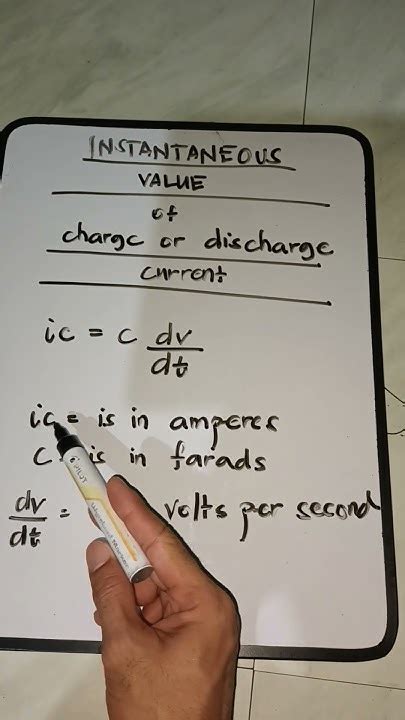 INSTANTANEOUS
VALUE
of
charge or discharge
current
ic = c dv/dt
ic = is in amperes
c is in farads
dv/dt = volts per second